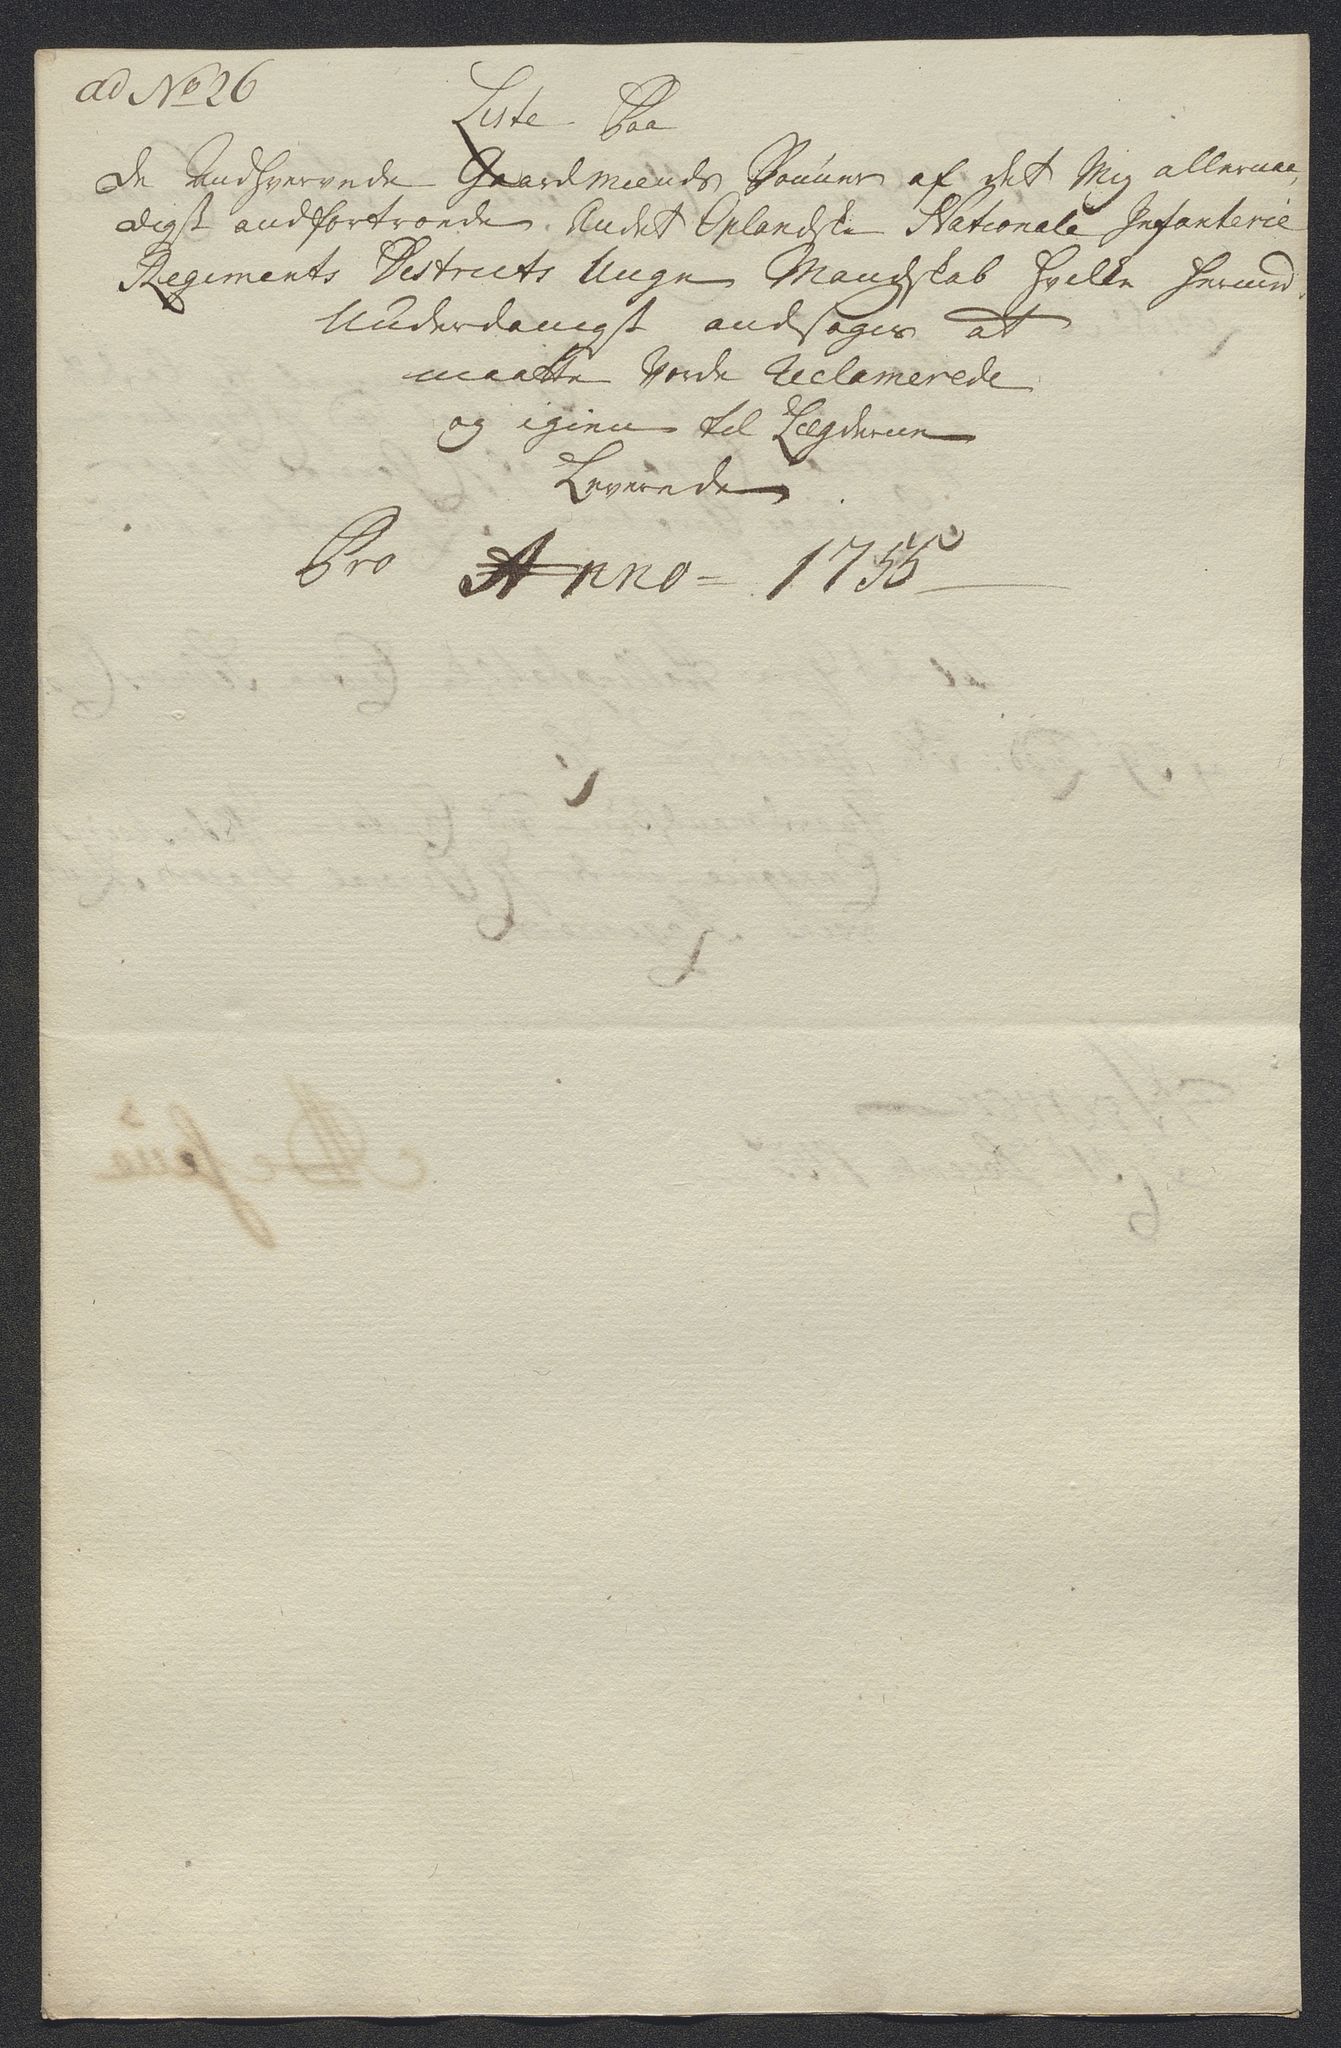 ad No 26
Liste Paa
de Udhvervede Gaardmænds Sönner af det Mig allernaa,
digst andfortroede Andet Oplandske Nationale Infanterie
Regiments Districts Unge Mandskab hvilke herved
Underdanigst andsøges at
maatte vorde Reclamerede
og igien til Lægderne
Leverede
Pro Anno = 1755